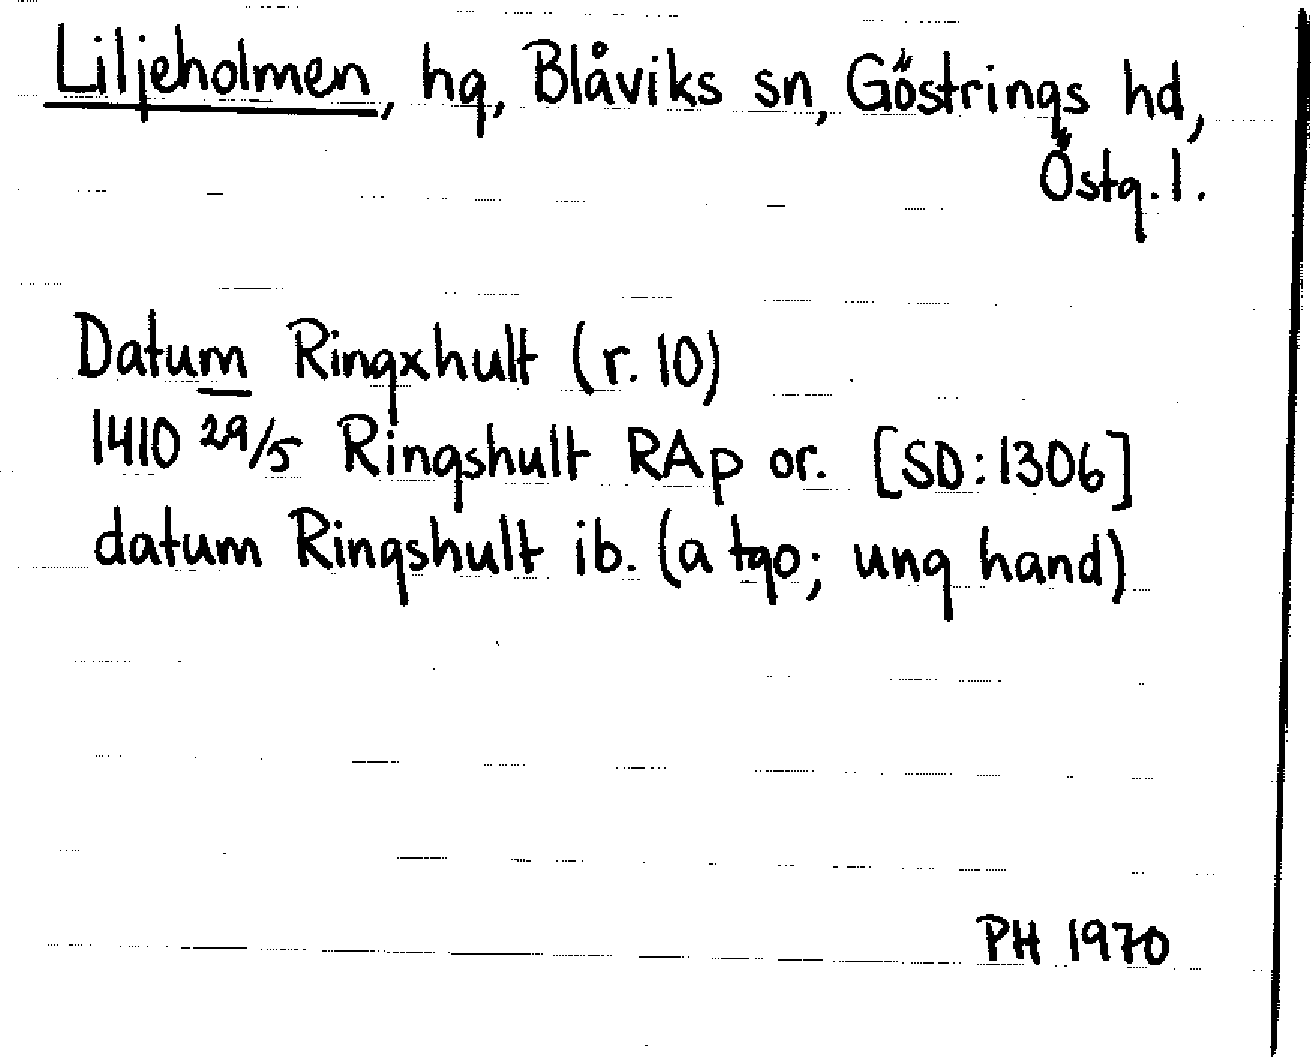 Liljeholmen, hg, Blåviks sn, Göstrings hd,
Östg.l.
Datum Ringxhult (r. 10)
1410 29/5 Ringshult RAp or. [SD:1306]
datum Ringshult ib. (a tgo; ung hand)
PH 1970